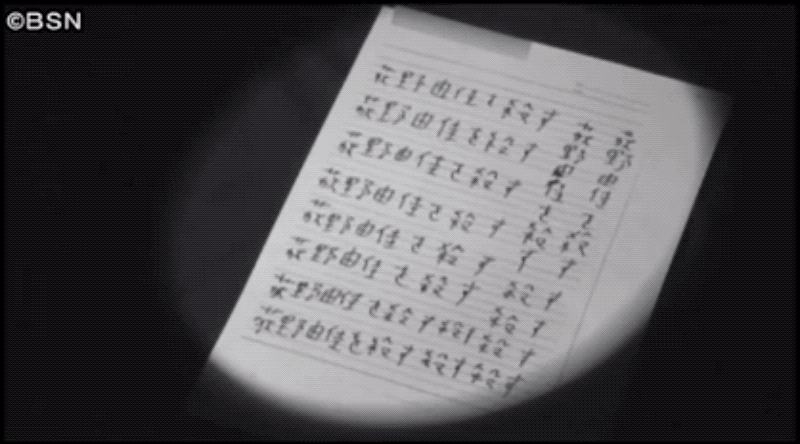 ©BSN
荻野由佳を殺す
荻野由佳を殺す
荻野由佳を殺す
荻野由佳を殺す
荻野由佳を殺す 殺す
荻野由佳を殺す 殺す
荻野由佳を殺す殺す殺す
荻野由佳を殺す殺す殺す
荻野由佳を殺す
荻野由佳を殺す